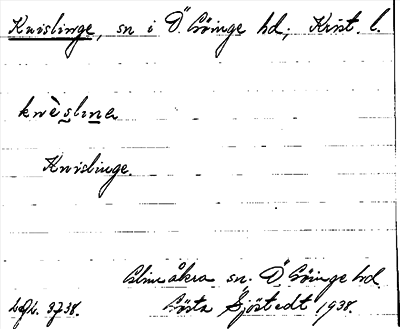 Knislinge, sn i Ö. Göinge hd; Krist. l.
knèslına
Knislinge.
Glimåkra sn. Ö. Göinge hd
Gösta Sjöstedt 1938.